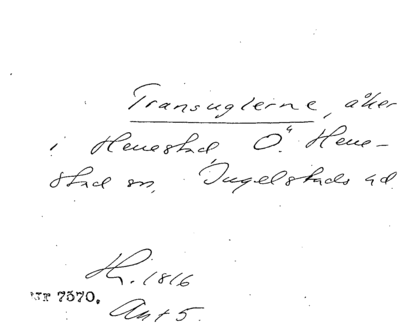 Transuglerne, åker
i Herrestad, Ö. Herre-
stad sn, Ingelstads hd.
H. 1816
NT 7570.
Akt 5.